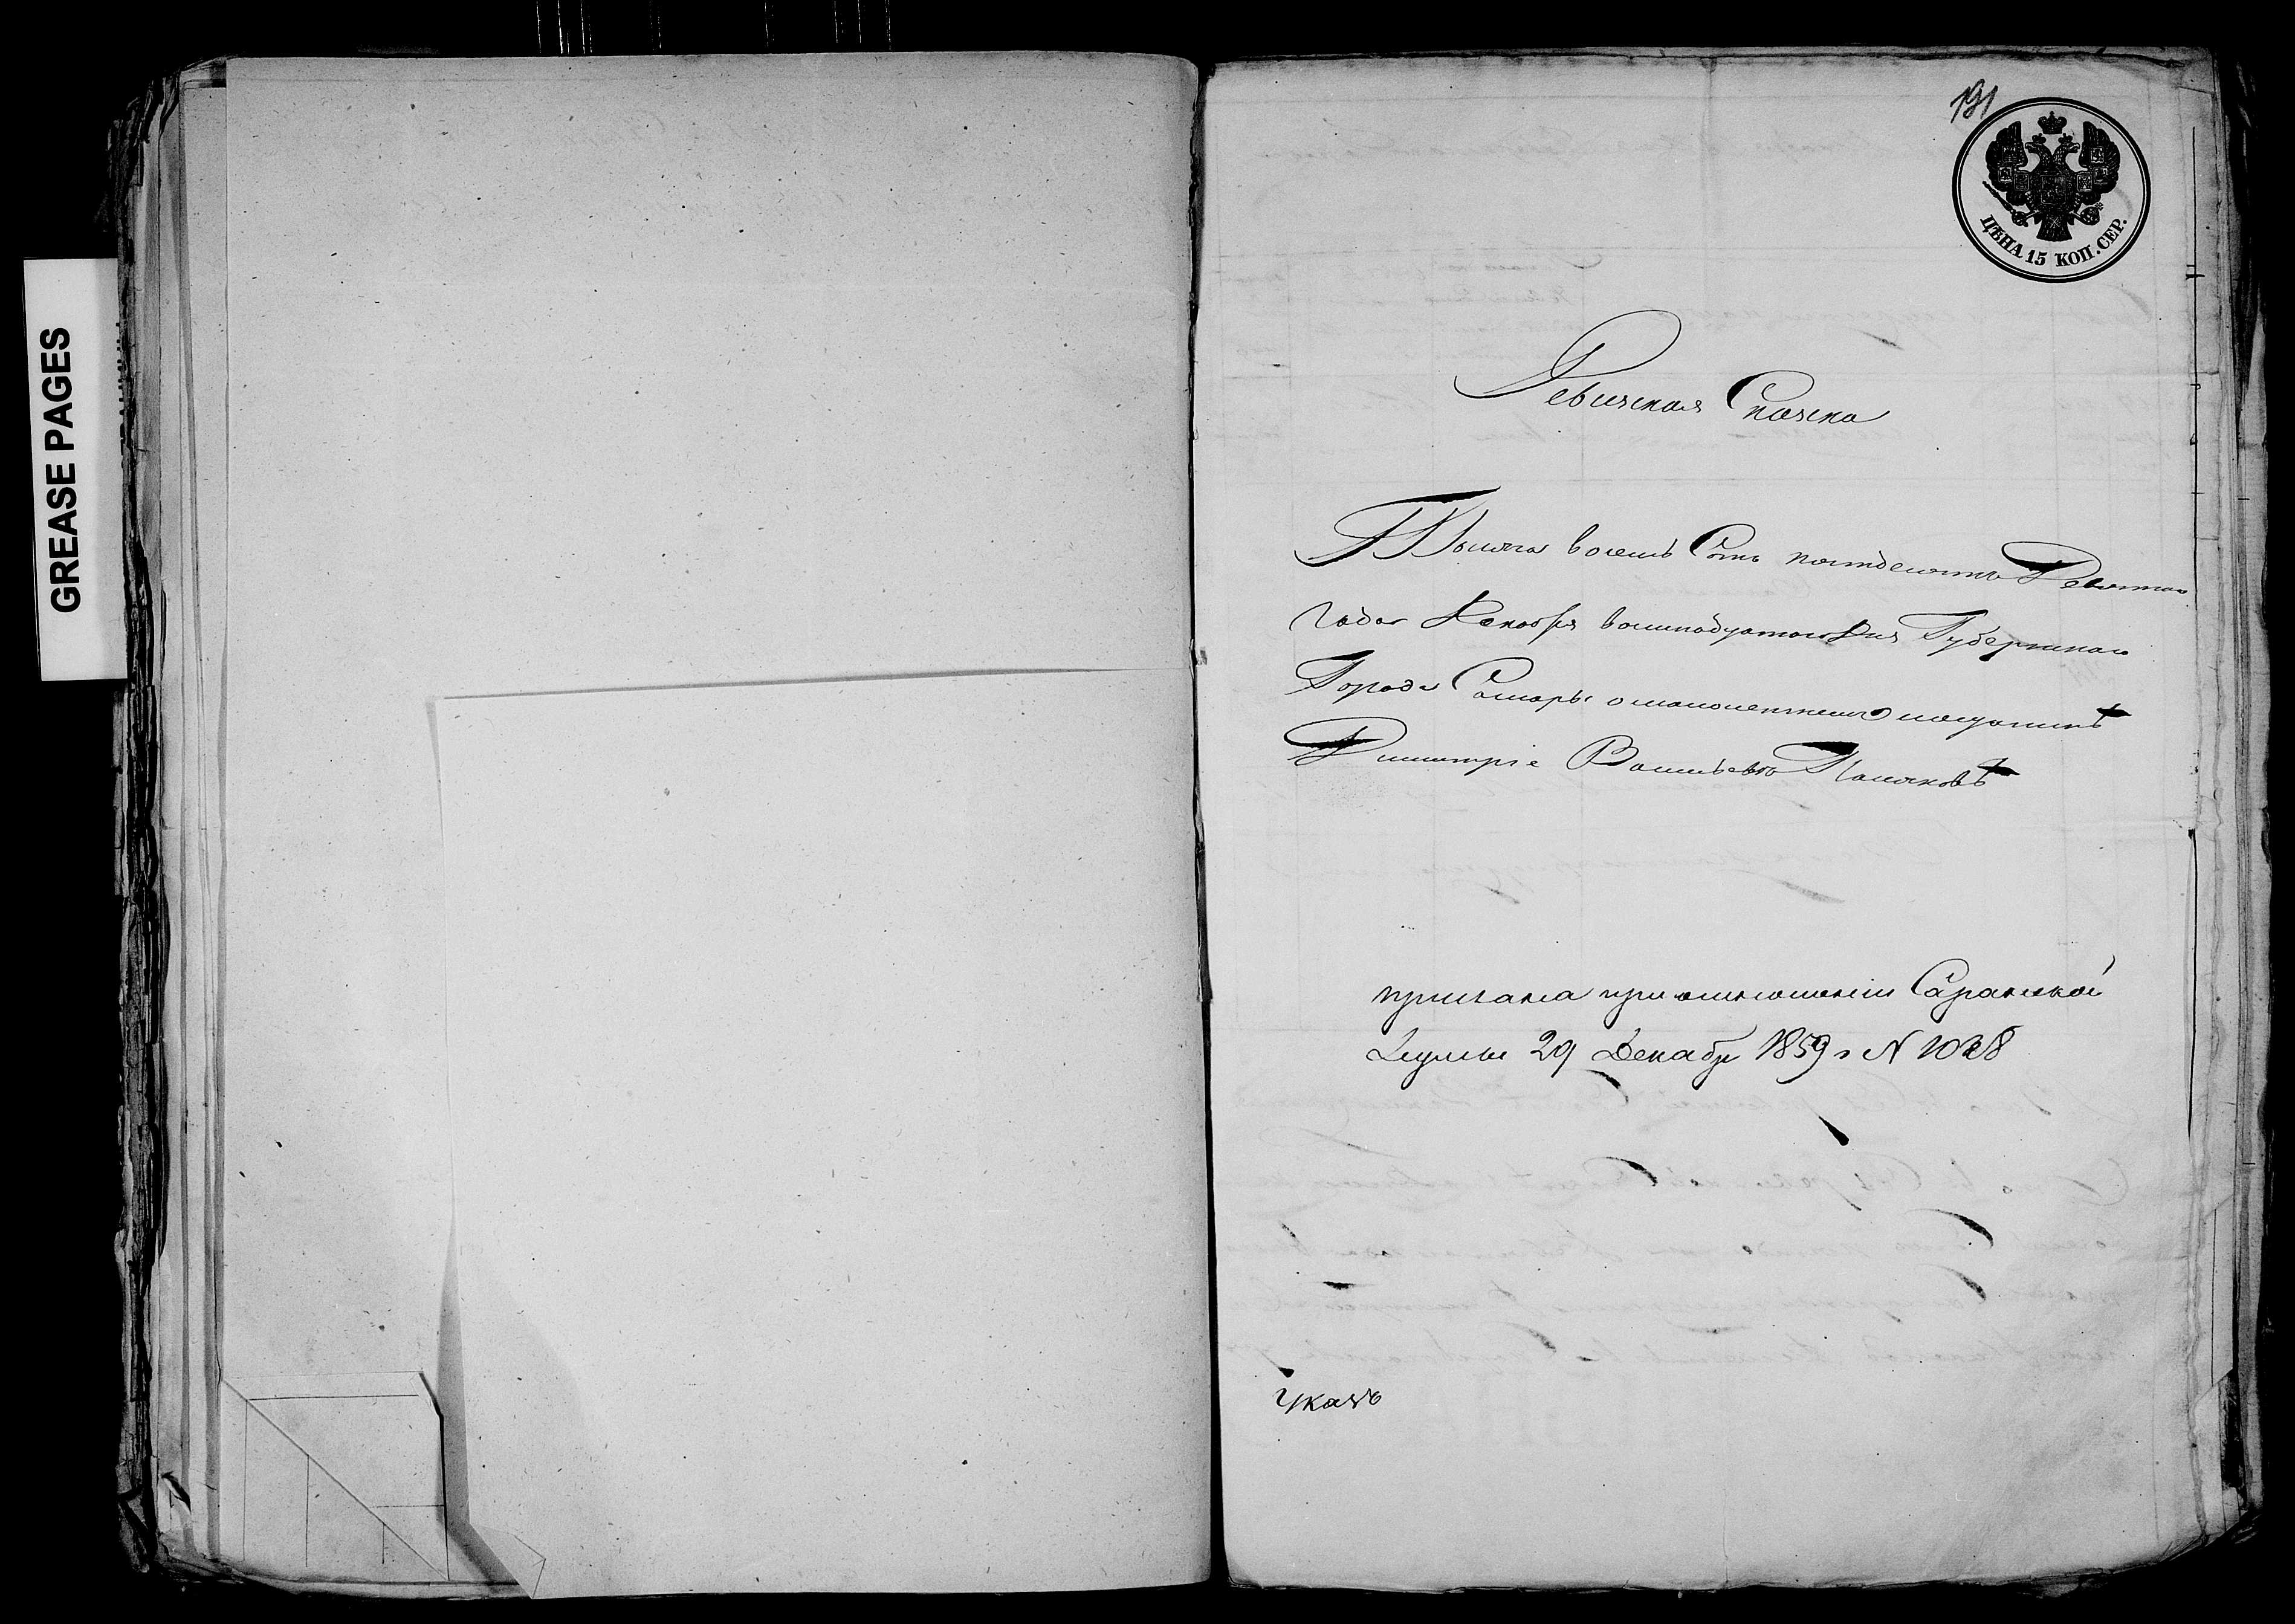 GREASE PAGES
191
ЦѢНА 15 КОП. СЕР.
Ревизская Сказка
Тысяча восемь Сотъ пятьдесятъ Девятаго
Года Декабря восемнадцатого дня Губернскаго
Города Самары о малолетнемъ мещанинѣ
Димитріе Васильевѣ Поляковѣ
прислана при отношеніи Саранской
Думы 29 Декабр 1859 г N 1028
Указъ